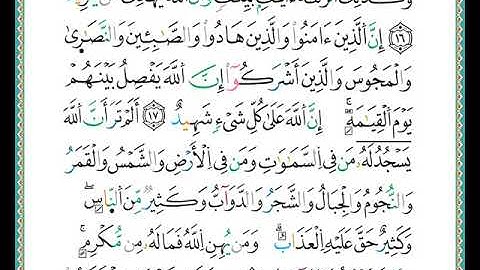 وَكَذَٰلِكَ
﴿١٦﴾ إِنَّ ٱلَّذِينَ ءَامَنُوا۟ وَٱلَّذِينَ هَادُوا۟ وَٱلصَّٰبِـِٔينَ وَٱلنَّصَٰرَىٰ
وَٱلْمَجُوسَ وَٱلَّذِينَ أَشْرَكُوٓا۟ إِنَّ ٱللَّهَ يَفْصِلُ بَيْنَهُمْ
يَوْمَ ٱلْقِيَٰمَةِ ۚ إِنَّ ٱللَّهَ عَلَىٰ كُلِّ شَىْءٍ شَهِيدٌ ﴿١٧﴾ أَلَمْ تَرَ أَنَّ ٱللَّهَ
يَسْجُدُ لَهُۥ مَن فِى ٱلسَّمَٰوَٰتِ وَمَن فِى ٱلْأَرْضِ وَٱلشَّمْسُ وَٱلْقَمَرُ
وَٱلنُّجُومُ وَٱلْجِبَالُ وَٱلشَّجَرُ وَٱلدَّوَآبُّ وَكَثِيرٌ مِّنَ ٱلنَّاسِ ۖ
وَكَثِيرٌ حَقَّ عَلَيْهِ ٱلْعَذَابُ ۗ وَمَن يُهِنِ ٱللَّهُ فَمَا لَهُۥ مِن مُّكْرِمٍ ۚ